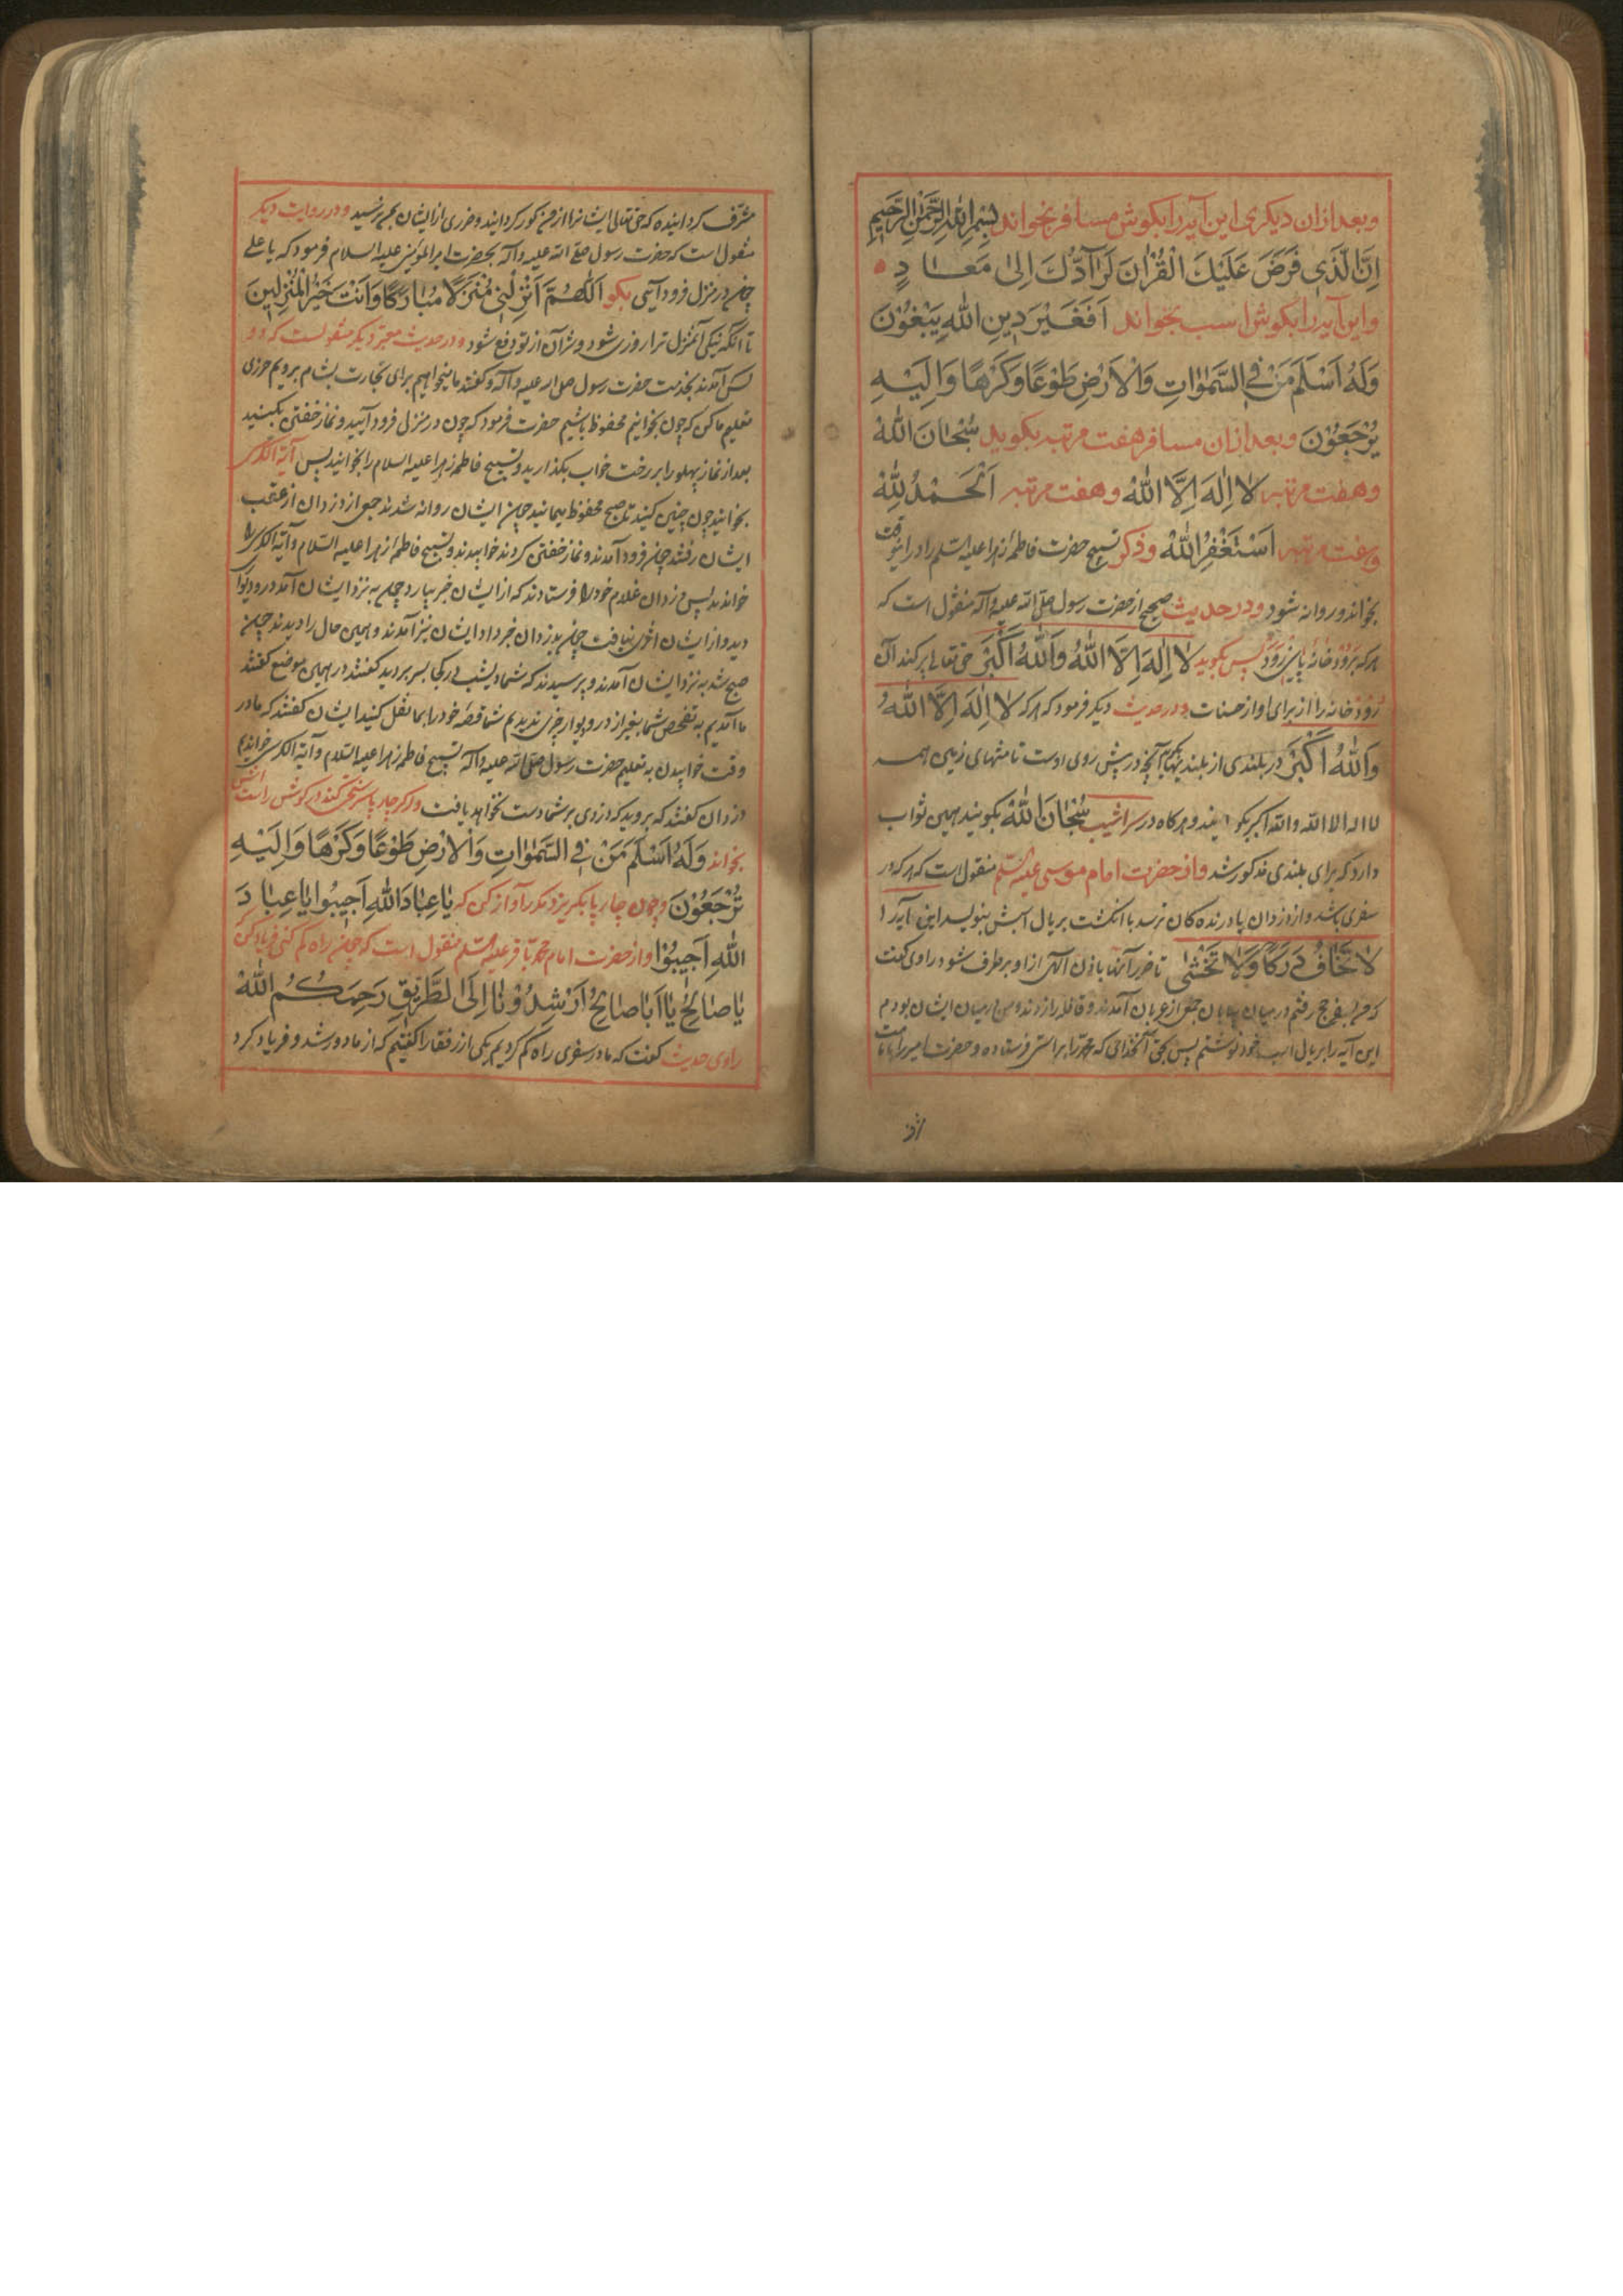 وبعد ازان دیکری این آیه را بکوش مسافر بخواند بِسْمِ اللهِ الرَّحْمٰنِ الرَّحِیمِ
اِنَّ الَّذِی فَرَضَ عَلَیْكَ الْقُرْاٰنَ لَرَآدُّكَ اِلیٰ مَعَادٍ
واین آیه را بکوش اسب بخواند اَفَغَیْرَ دِینِ اللهِ یَبْغُوْنَ
وَلَهُ اَسْلَمَ مَنْ فِی السَّمٰوٰاتِ وَالْاَرْضِ طَوْعًا وَكَرْهًا وَاِلَیْهِ
یُرْجَعُوْنَ وبعد ازان مسافر هفت مرتبه بکوید سُبْحٰانَ اللهِ
وهفت مرتبه لا اِلٰهَ اِلَّا اللهُ وهفت مرتبه اَلْحَمْدُ لِلّٰهِ
وهفت مرتبه اَسْتَغْفِرُ اللهَ وذکر تسبیح حضرت فاطمهٔ زهرا علیه السلم را در اینوقت
بخواند و روانه شود ودر حدیث صحیح از حضرت رسول صلی الله علیه وآله منقول است که
هرکه بَرُوْدْخانهٔ پایین رَوَدْ پس بکوید لا اِلٰهَ اِلَّا اللهُ وَاللهُ اَكْبَرُ حق تعالی پر کند آن
رُوْدْخانه را از برای او از حسنات ودر حدیث دیکر فرمود که هرکه لا اِلٰهَ اِلَّا اللهُ
وَاللهُ اَكْبَرُ در بلندی از بلندیها بکوید آنچه در پیش روی اوست تا منتهای زمین همه
لا اله الا الله والله اکبر بکویند و هرکاه در سراشیب سُبْحٰانَ اللهِ بکویند همین ثواب
دارد که برای بلندی مذکور شد واز حضرت امام موسی علیه السلم منقول است که هرکه در
سفری باشد و از دزدان یا درنده کان ترسد با انکشت بر یال اسبش بنویسد این آیه را
لا تَخٰافُ دَرَكًا وَلا تَخْشٰی تا ضرر آنها باذن الهی از او برطرف شود راوی کفت
که من بسفر حج رفتم در میان بیابان جمعی از عربان آمدند و قافله را زدند و من در میان ایشان بودم
این آیه را بر یال اسب خود نوشتم پس بحق آنخدائی که محمد را براستی فرستاده و حضرت امیر را بامامت
مشرف کردانیده که حق تعالی ایشانرا از من کور کردانید و ضرری از ایشان بمن نرسید ودر روایت دیکر
منقول است که حضرت رسول صلی الله علیه وآله بحضرت امیرالمؤمنین علیه السلام فرمود که یا علی
چون در منزل فرود آیی بکو اَللّٰهُمَّ اَنْزِلْنِی مُنْزَلًا مُبٰارَكًا وَاَنْتَ خَیْرُ الْمُنْزِلِینَ
تا آنکه نیکی آنمنزل ترا روزی شود و شر آن از تو دفع شود ودر حدیث معتبر دیکر منقولست که دو
کس آمدند بخدمت حضرت رسول صلی الله علیه وآله و کفتند ما میخواهیم برای تجارت بشام برویم حرزی
تعلیم ما کن که چون بخوانیم محفوظ باشیم حضرت فرمود که چون در منزل فرود آیید و نماز خفتن بکنید
بعد از نماز پهلو را بر رخت خواب بکذارید و تسبیح فاطمه زهرا علیه السلام را بخوانید پس آیة الکرسی
بخوانید چون چنین کنید تا صبح محفوظ میمانید چون ایشان روانه شدند جمعی از دزدان از عقب
ایشان رفتند چون فرود آمدند و نماز خفتن کردند خوابیدند و تسبیح فاطمهٔ زهرا علیه السلام و آیة الکرسی را
خواندند پس دزدان غلام خود را فرستادند که از ایشان خبر بیارد چون به نزد ایشان آمد در و دیوار
دید و از ایشان اثری نیافت چون بدزدان خبر داد ایشان نیز آمدند و همین حال را دیدند چون
صبح شد به نزد ایشان آمدند و پرسیدند که شما دیشب در کجا بسر بردید کفتند در همین موضع کفتند
ما آمدیم به تفحص شما بغیر از در و دیوار چیزی ندیدیم شما قصهٔ خود را بما نقل کنید ایشان کفتند که ما در
وقت خوابیدن به تعلیم حضرت رسول صلی الله علیه وآله تسبیح فاطمه زهرا علیه السلام و آیة الکرسی خواندیم
دزدان کفتند که بروید که دزدی بر شما دست نخواهد یافت واکر چارپا سرکشی کند در کوش راستش
بخواند وَلَهُ اَسْلَمَ مَنْ فِی السَّمٰوٰاتِ وَالْاَرْضِ طَوْعًا وَكَرْهًا وَاِلَیْهِ
تُرْجَعُوْنَ وچون چارپا بکریزد مکرر آواز کن که یٰا عِبٰادَ اللهِ اَجِیبُوا یٰا عِبٰادَ
اللهِ اَجِیبُوْا واز حضرت امام محمد باقر علیه السلم منقول است که چون راه کم کنی فریاد کن
یٰا صٰالِحُ یٰا اَبٰا صٰالِحُ اَرْشِدُوْنٰا اِلَی الطَّرِیقِ رَحِمَكُمُ اللهُ
راوی حدیث کفت که ما در سفری راه کم کردیم یکی از رفقا را کفتیم که از ما دور شد و فریاد کرد